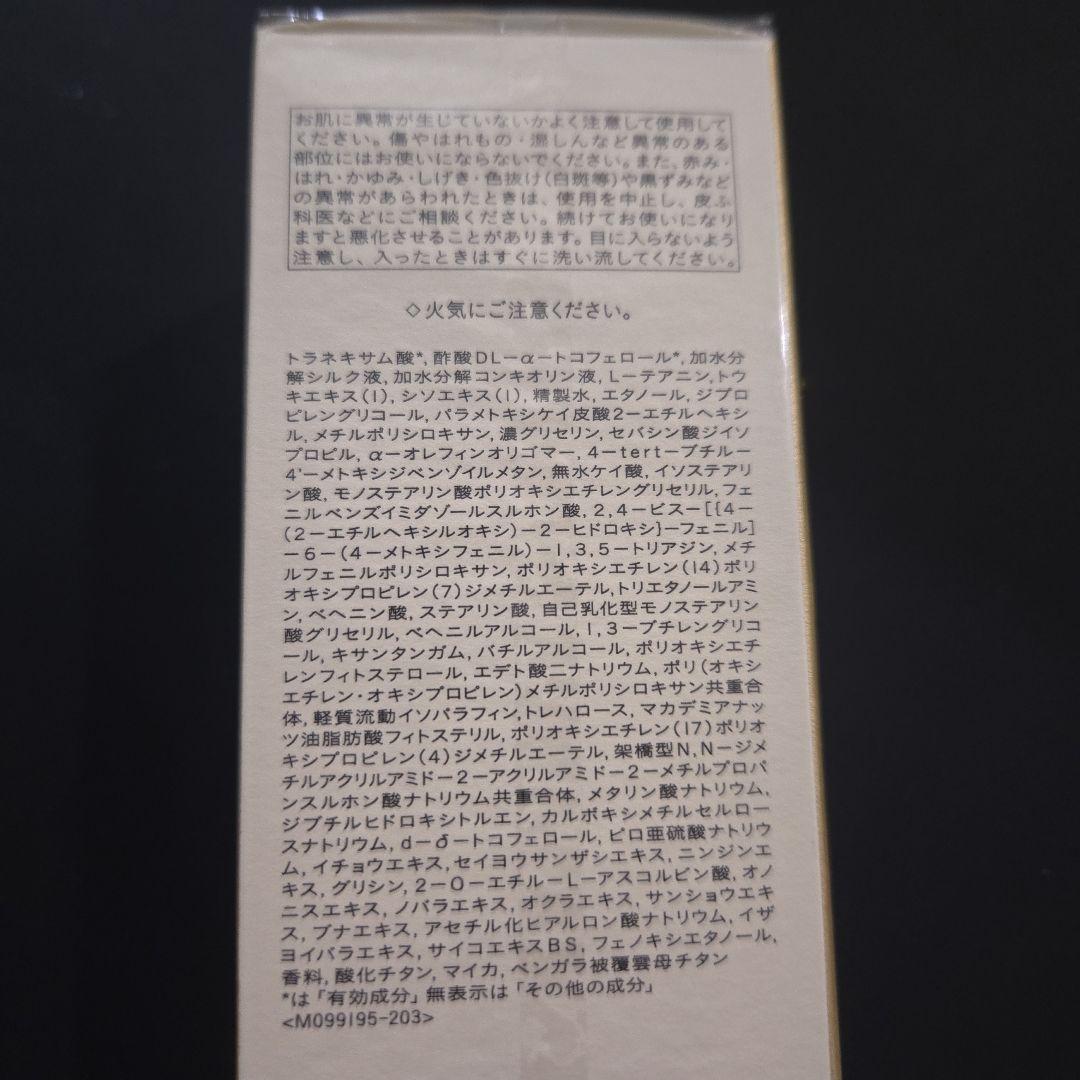 お肌に異常が生じていないかよく注意して使用して
ください。傷やはれもの・湿しんなど異常のある
部位にはお使いにならないでください。また、赤み・
はれ・かゆみ・しげき・色抜け(白斑等)や黒ずみなど
の異常があらわれたときは、使用を中止し、皮ふ
科医などにご相談ください。続けてお使いになり
ますと悪化させることがあります。目に入らないよう
注意し、入ったときはすぐに洗い流してください。
◇火気にご注意ください。
トラネキサム酸*, 酢酸DL－α－トコフェロール*, 加水分
解シルク液, 加水分解コンキオリン液, L－テアニン,トウ
キエキス(1), シソエキス(1), 精製水, エタノール, ジプロ
ピレングリコール, パラメトキシケイ皮酸2－エチルヘキシ
ル, メチルポリシロキサン, 濃グリセリン, セバシン酸ジイソ
プロピル, α－オレフィンオリゴマー, 4－tert－ブチル－
4'－メトキシジベンゾイルメタン, 無水ケイ酸, イソステアリ
ン酸, モノステアリン酸ポリオキシエチレングリセリル, フェ
ニルベンズイミダゾールスルホン酸, 2,4－ビス－[{4－
(2－エチルヘキシルオキシ)－2－ヒドロキシ}－フェニル]
－6－(4－メトキシフェニル)－1,3,5－トリアジン, メチ
ルフェニルポリシロキサン, ポリオキシエチレン(14)ポリ
オキシプロピレン(7)ジメチルエーテル,トリエタノールアミ
ン, ベヘニン酸, ステアリン酸, 自己乳化型モノステアリン
酸グリセリル, ベヘニルアルコール, 1,3－ブチレングリコ
ール, キサンタンガム, バチルアルコール, ポリオキシエチ
レンフィトステロール, エデト酸二ナトリウム, ポリ(オキシ
エチレン・オキシプロピレン)メチルポリシロキサン共重合
体, 軽質流動イソパラフィン,トレハロース, マカデミアナッ
ツ油脂肪酸フィトステリル, ポリオキシエチレン(17)ポリオ
キシプロピレン(4)ジメチルエーテル, 架橋型N,N－ジメ
チルアクリルアミド－2－アクリルアミド－2－メチルプロパ
ンスルホン酸ナトリウム共重合体, メタリン酸ナトリウム,
ジブチルヒドロキシトルエン, カルボキシメチルセルロー
スナトリウム, d－δ－トコフェロール, ピロ亜硫酸ナトリウ
ム, イチョウエキス, セイヨウサンザシエキス, ニンジンエ
キス, グリシン, 2－O－エチル－L－アスコルビン酸, オノ
ニスエキス, ノバラエキス, オクラエキス, サンショウエキ
ス, ブナエキス, アセチル化ヒアルロン酸ナトリウム, イザ
ヨイバラエキス, サイコエキスBS, フェノキシエタノール,
香料, 酸化チタン, マイカ, ベンガラ被覆雲母チタン
*は「有効成分」無表示は「その他の成分」
<M099195-203>